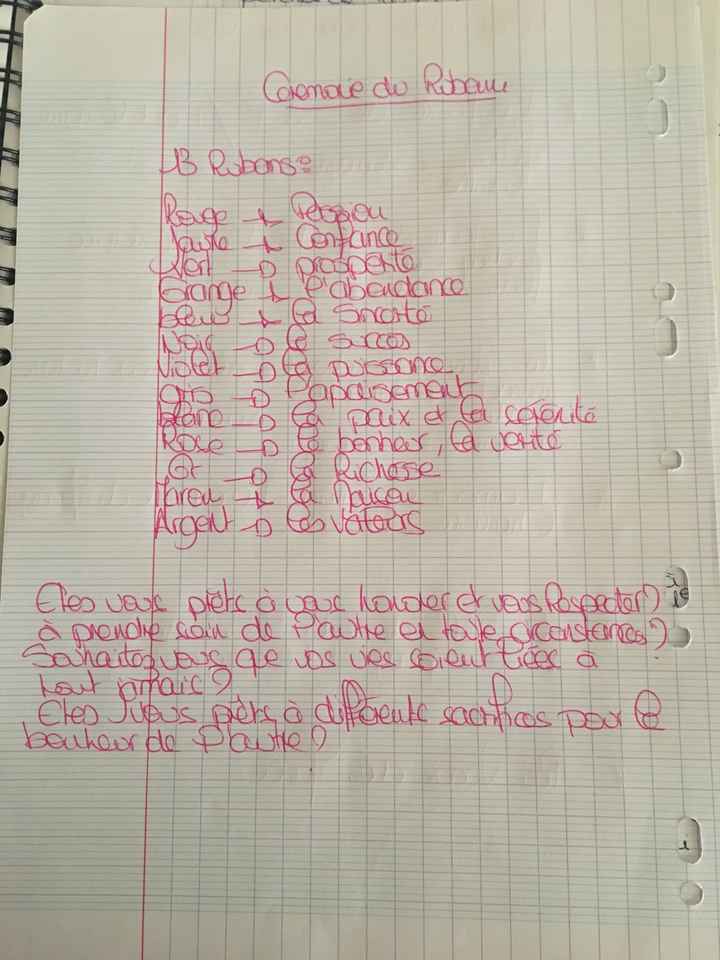 Cérémonie du Ruban
13 Rubans:
Rouge → Passion
Jaune → Confiance
Vert → prospérité
Orange → l'abondance
bleu → la sincérité
Noir → le succès
Violet → la puissance
gris → l'apaisement
blanc → la paix et la sérénité
Rose → le bonheur, la vérité
Or → la Richesse
Marron → la
Argent → les Valeurs
Êtes vous prêts à vous honorer et vous Respecter?
à prendre soin de l'autre en toute circonstances?
Souhaitez vous que vos vies soient liées à
tout jamais?
Êtes vous prêts à différents sacrifices pour le
bonheur de l'autre?